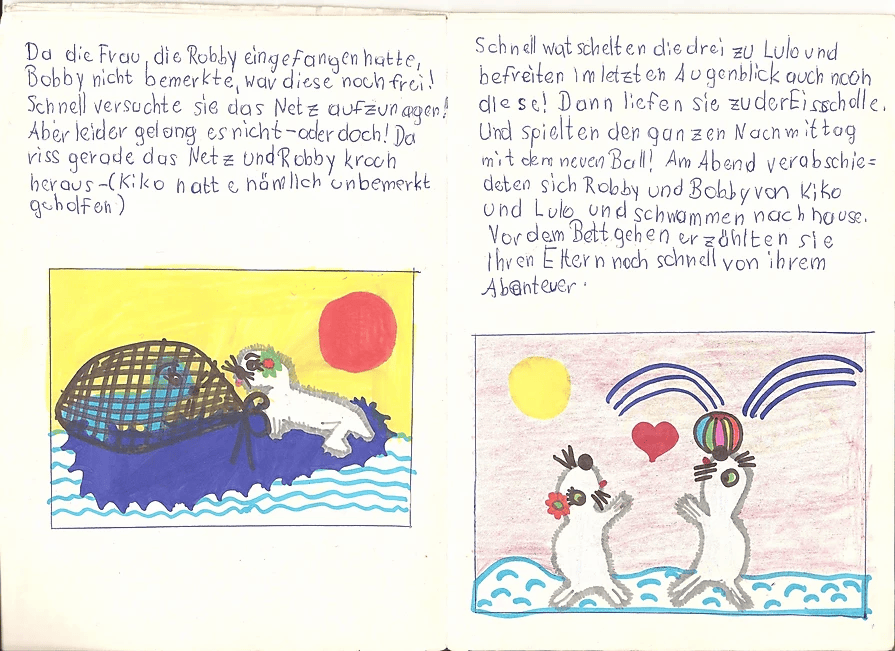 Da die Frau, die Robby eingefangen hatte,
Bobby nicht bemerkte, war diese noch frei!
Schnell versuchte sie das Netz aufzunagen!
Aber leider gelang es nicht-oder doch! Da
riss gerade das Netz und Robby kroch
heraus-(Kiko hatte nämlich unbemerkt
geholfen)
Schnell watschelten die drei zu Lulo und
befreiten im letzten Augenblick auch noch
diese! Dann liefen sie zu der Eisscholle.
Und spielten den ganzen Nachmittag
mit dem neuen Ball! Am Abend verabschie=
deten sich Robby und Bobby von Kiko
und Lulo und schwammen nach hause.
Vor dem Bett gehen erzählten sie
Ihren Eltern noch schnell von ihrem
Abenteuer.